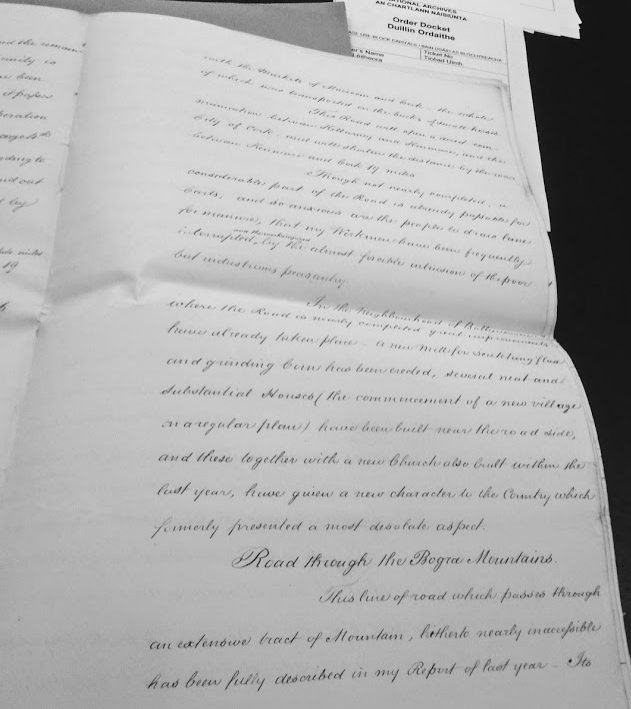 NATIONAL ARCHIVES
AN CHARTLANN NAISIÚNTA
Order Docket
Duillín Ordaithe
Ticket No.
with the Markets of Macroom and Cork – the whole
of which was transported on the backs of small horses
This Road will open a direct com
munication between Killarney and Kenmare, and the
City of Cork – and will shorten the distance by the road
between Kenmare and Cork 17 miles
Though not nearly completed, a
considerable part of the Road is already passable for
Carts, and so anxious are the people to draw lime
for manure, that my Workmen have been frequently
interrupted, by the almost forcible intrusion of the poor
but industrious peasantry
In the Neighbourhood of
where the Road is nearly completed great improvements
have already taken place – a new Mill for scutching flax
and grinding Corn has been erected, several neat and
substantial Houses (the commencement of a new village
on a regular plan) have been built near the road side,
and these together with a new Church also built within the
last year, have given a new character to the Country which
formerly presented a most desolate aspect.
Road through the Bogra Mountains.
This line of road which passes through
an extensive tract of Mountain, hitherto nearly inaccessible
has been fully described in my Report of last year – Its